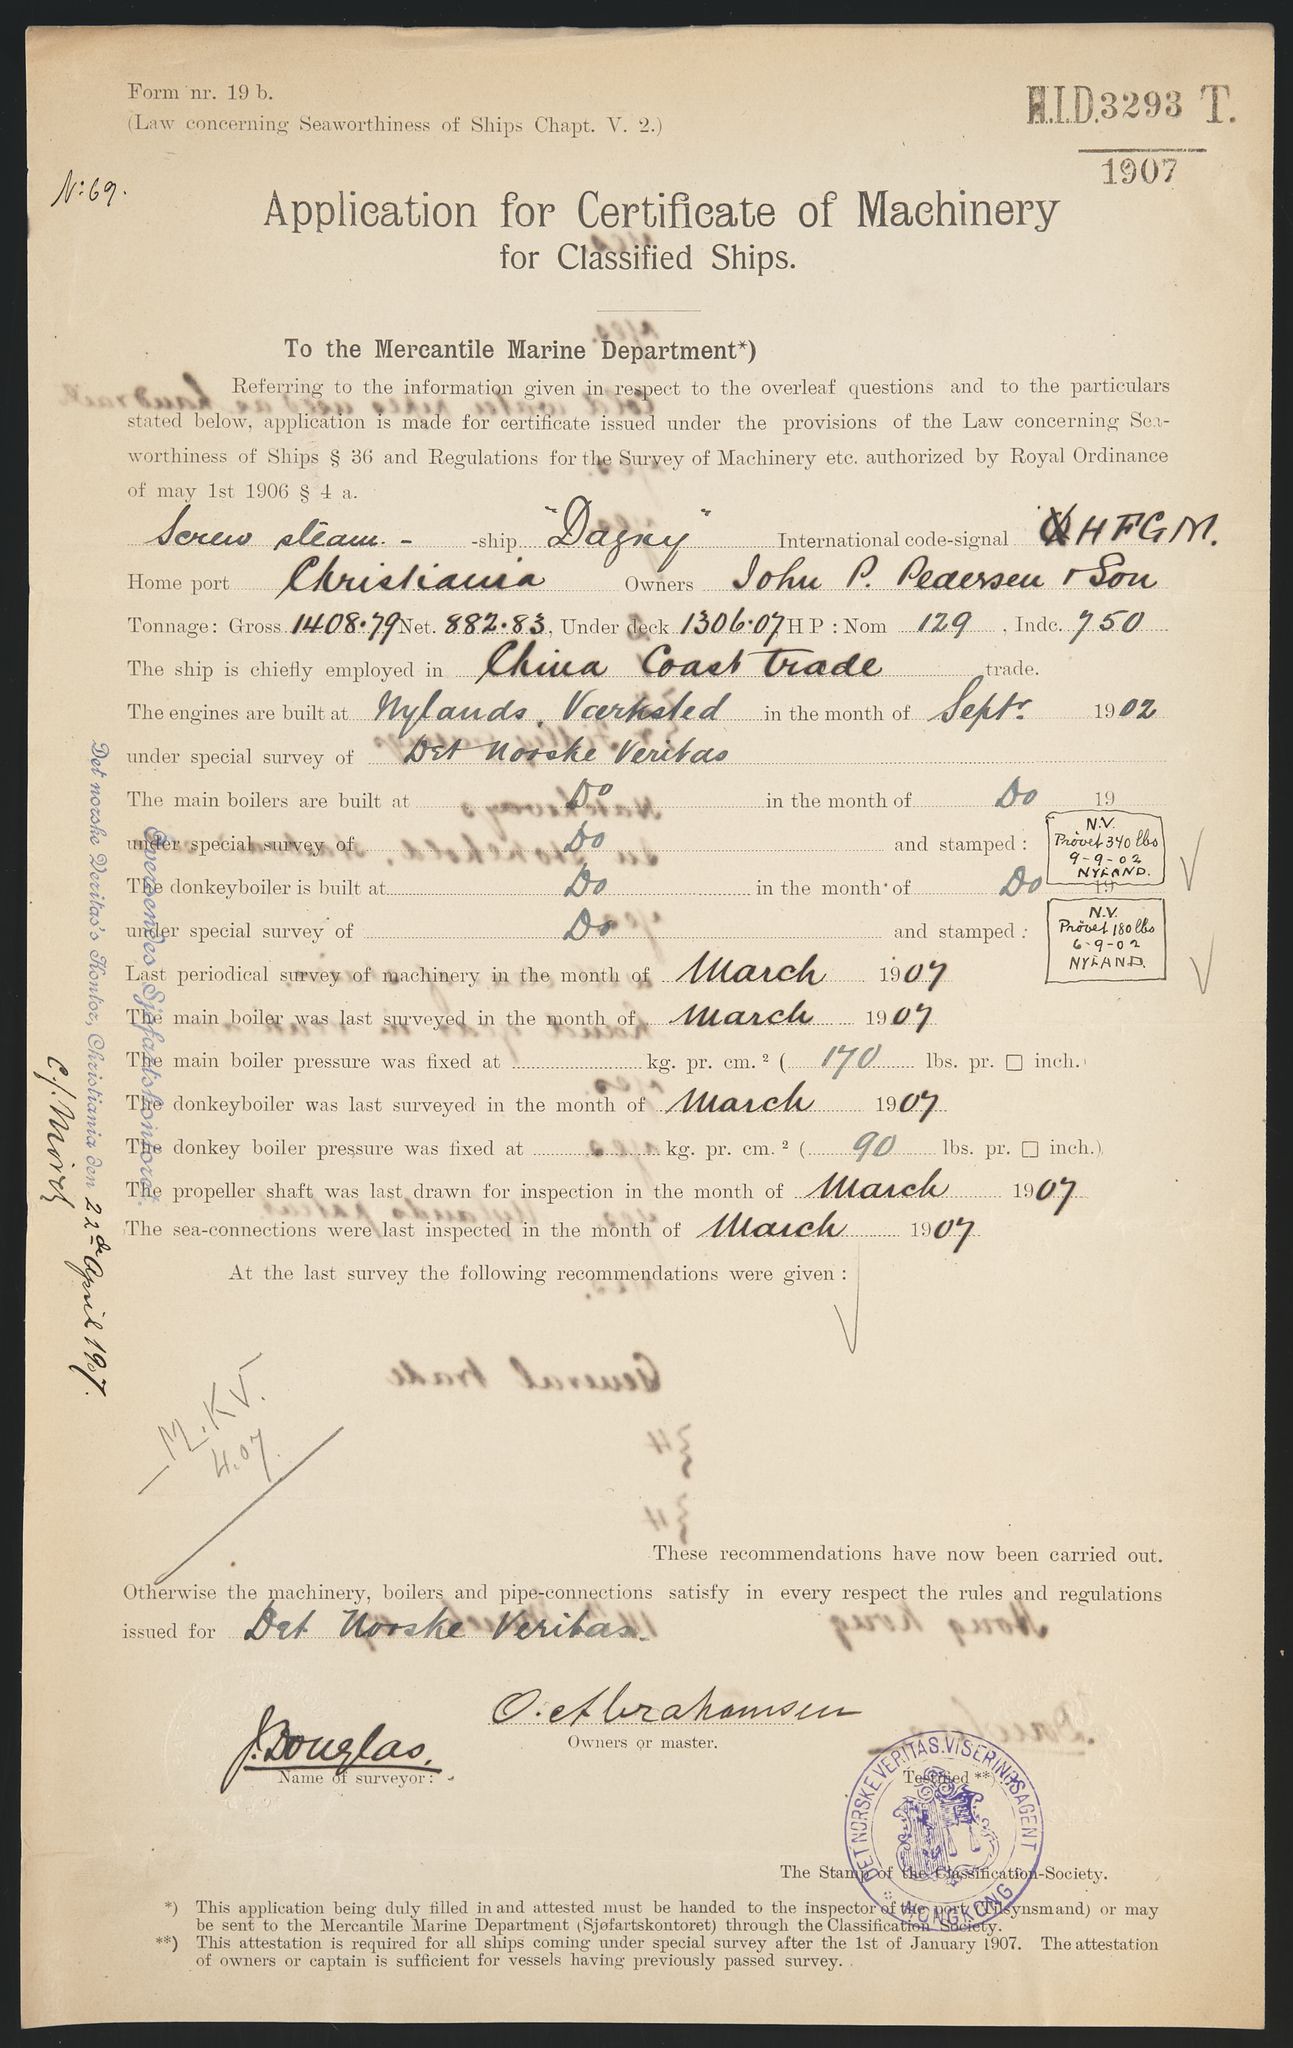 Form nr. 19 b.
(Law concerning Seaworthiness of Ships Chapt. V. 2.)
H.I.D. 3293 T.
1907
No: 69.
Application for Certificate of Machinery
for Classified Ships.
To the Mercantile Marine Department*)
Referring to the information given in respect to the overleaf questions and to the particulars
stated below, application is made for certificate issued under the provisions of the Law concerning Sea-
worthiness of Ships § 36 and Regulations for the Survey of Machinery etc. authorized by Royal Ordinance
of may 1st 1906 § 4 a.
Screw steam - -ship "Dagny" International code-signal HFGM.
Home port Christiania Owners John P. Pedersen & Son
Tonnage: Gross 1408.79 Net. 882.83, Under deck 1306.07 H P : Nom 129, Indc. 750
The ship is chiefly employed in China Coast trade trade.
The engines are built at Nylands Værksted in the month of Septr. 1902
under special survey of Det Norske Veritas
The main boilers are built at Do in the month of Do 19
under special survey of Do and stamped : N.V. Prövet 340 lbs 9-9-02 NYLAND.
The donkeyboiler is built at Do in the month of Do 19
under special survey of Do and stamped : N.V. Prövet 180 lbs 6-9-02 NYLAND.
Last periodical survey of machinery in the month of March 1907
The main boiler was last surveyed in the month of March 1907
The main boiler pressure was fixed at kg. pr. cm.² ( 170 lbs. pr. □ inch.)
The donkeyboiler was last surveyed in the month of March 1907
The donkey boiler pressure was fixed at kg. pr. cm.² ( 90 lbs. pr. □ inch.)
The propeller shaft was last drawn for inspection in the month of March 1907
The sea-connections were last inspected in the month of March 1907
At the last survey the following recommendations were given :
Oversendes Sjøfartskontoret.
Det norske Veritas's Kontor, Christiania den 22d April 1907.
M.K.V.
4.07.
These recommendations have now been carried out.
Otherwise the machinery, boilers and pipe-connections satisfy in every respect the rules and regulations
issued for Det Norske Veritas.
O. Abrahamsen
Owners or master.
J. Douglas.
Name of surveyor:
Testified **)
DET NORSKE VERITAS. VISERINGSAGENT
HONGKONG
The Stamp of the Classification-Society.
*) This application being duly filled in and attested must be handed to the inspector of the port (Tilsynsmand) or may
be sent to the Mercantile Marine Department (Sjøfartskontoret) through the Classification Society.
**) This attestation is required for all ships coming under special survey after the 1st of January 1907. The attestation
of owners or captain is sufficient for vessels having previously passed survey.